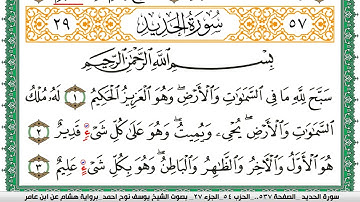 ٢٩ سُورَةُ الْحَدِيدِ ٥٧
بِسْمِ اللَّهِ الرَّحْمَٰنِ الرَّحِيمِ
سَبَّحَ لِلَّهِ مَا فِي السَّمَٰوَٰتِ وَالْأَرْضِ وَهُوَ الْعَزِيزُ الْحَكِيمُ ١ لَهُۥ مُلْكُ
السَّمَٰوَٰتِ وَالْأَرْضِ يُحْيِۦ وَيُمِيتُ وَهُوَ عَلَىٰ كُلِّ شَيْءٍ قَدِيرٌ ٢
هُوَ الْأَوَّلُ وَالْآخِرُ وَالظَّٰهِرُ وَالْبَاطِنُ وَهُوَ بِكُلِّ شَيْءٍ عَلِيمٌ ٣
سورة الحديد _الصفحة ٥٣٧... الحزب ٥٤_الجزء ٢٧_ بصوت الشيخ يوسف نوح احمد_برواية هشام عن ابن عامر